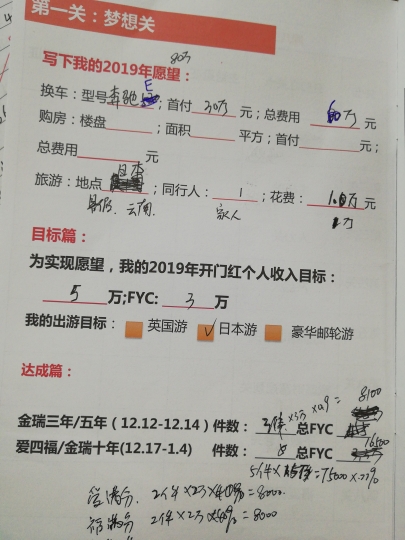 第一关：梦想关
写下我的2019年愿望：
换车：型号奔驰E；首付30万元；总费用60万元
购房：楼盘；面积平方；首付元；
总费用元
日本
旅游：地点；同行人：1；花费：元
暑假、云南、家人 2万
目标篇：
为实现愿望，我的2019年开门红个人收入目标：
5万;FYC: 3万
我的出游目标： 英国游 ✓日本游 豪华邮轮游
达成篇：
×3万×0.9= 8100
金瑞三年/五年（12.12-12.14）件数：3件总FYC
16500
爱四福/金瑞十年(12.17-1.4) 件数：8总FYC
5件× =75000×22%
2件×2万×40%=8000.
福满分 2件×2万×40%=8000